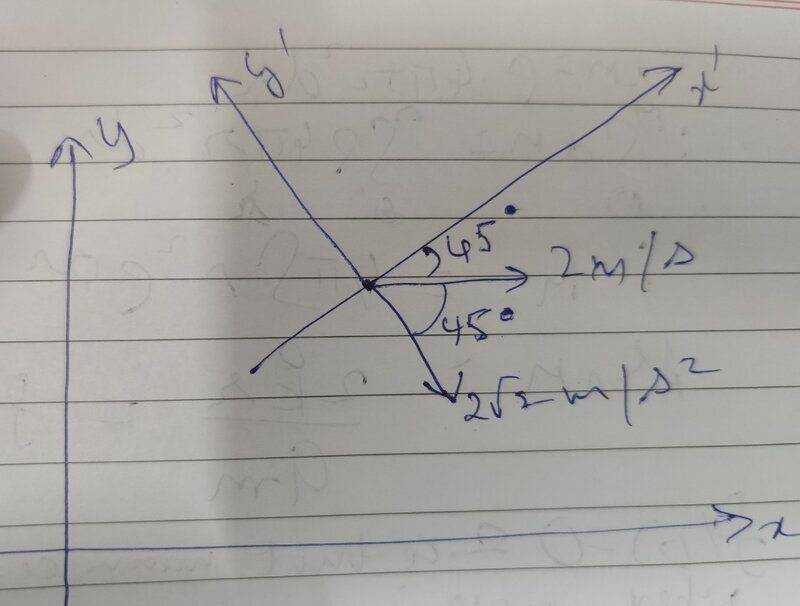 y'
x'
y
45°
2m/s
45°
2√2 m/s²
x